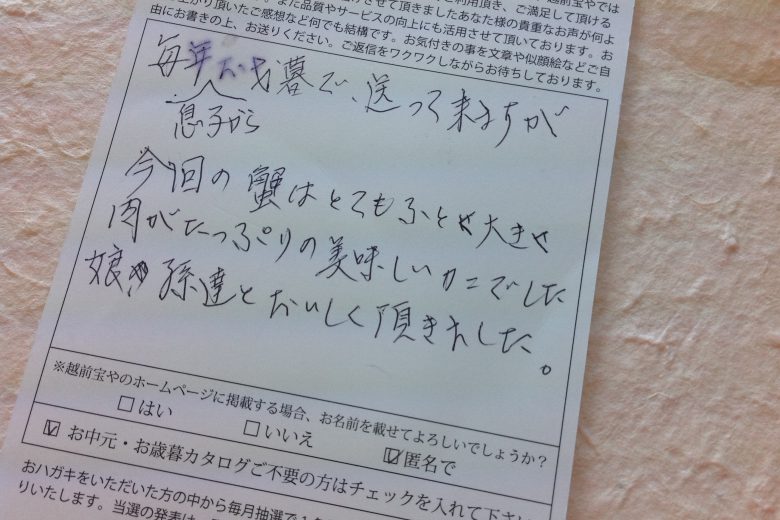 利用頂き、ご満足して頂ける
させて頂きましたあなた様の貴重なお声が何よ
上がり頂いたご感想など何でも結構です。お気付きの事を文章や似顔絵などご自
由にお書きの上、お送りください。ご返信をワクワクしながらお待ちしております。
毎年お歳暮で、送って来ますが
息子から
今回の蟹はとてもふとく大きく
肉がたっぷりの美味しいカニでした
娘や孫達とおいしく頂きました。
※越前宝やのホームページに掲載する場合、お名前を載せてよろしいでしょうか?
□はい □いいえ ☑匿名で
☑ お中元・お歳暮カタログご不要の方はチェックを入れて下さい
おハガキをいただいた方の中から毎月抽選で
りいたします。当選の発表は